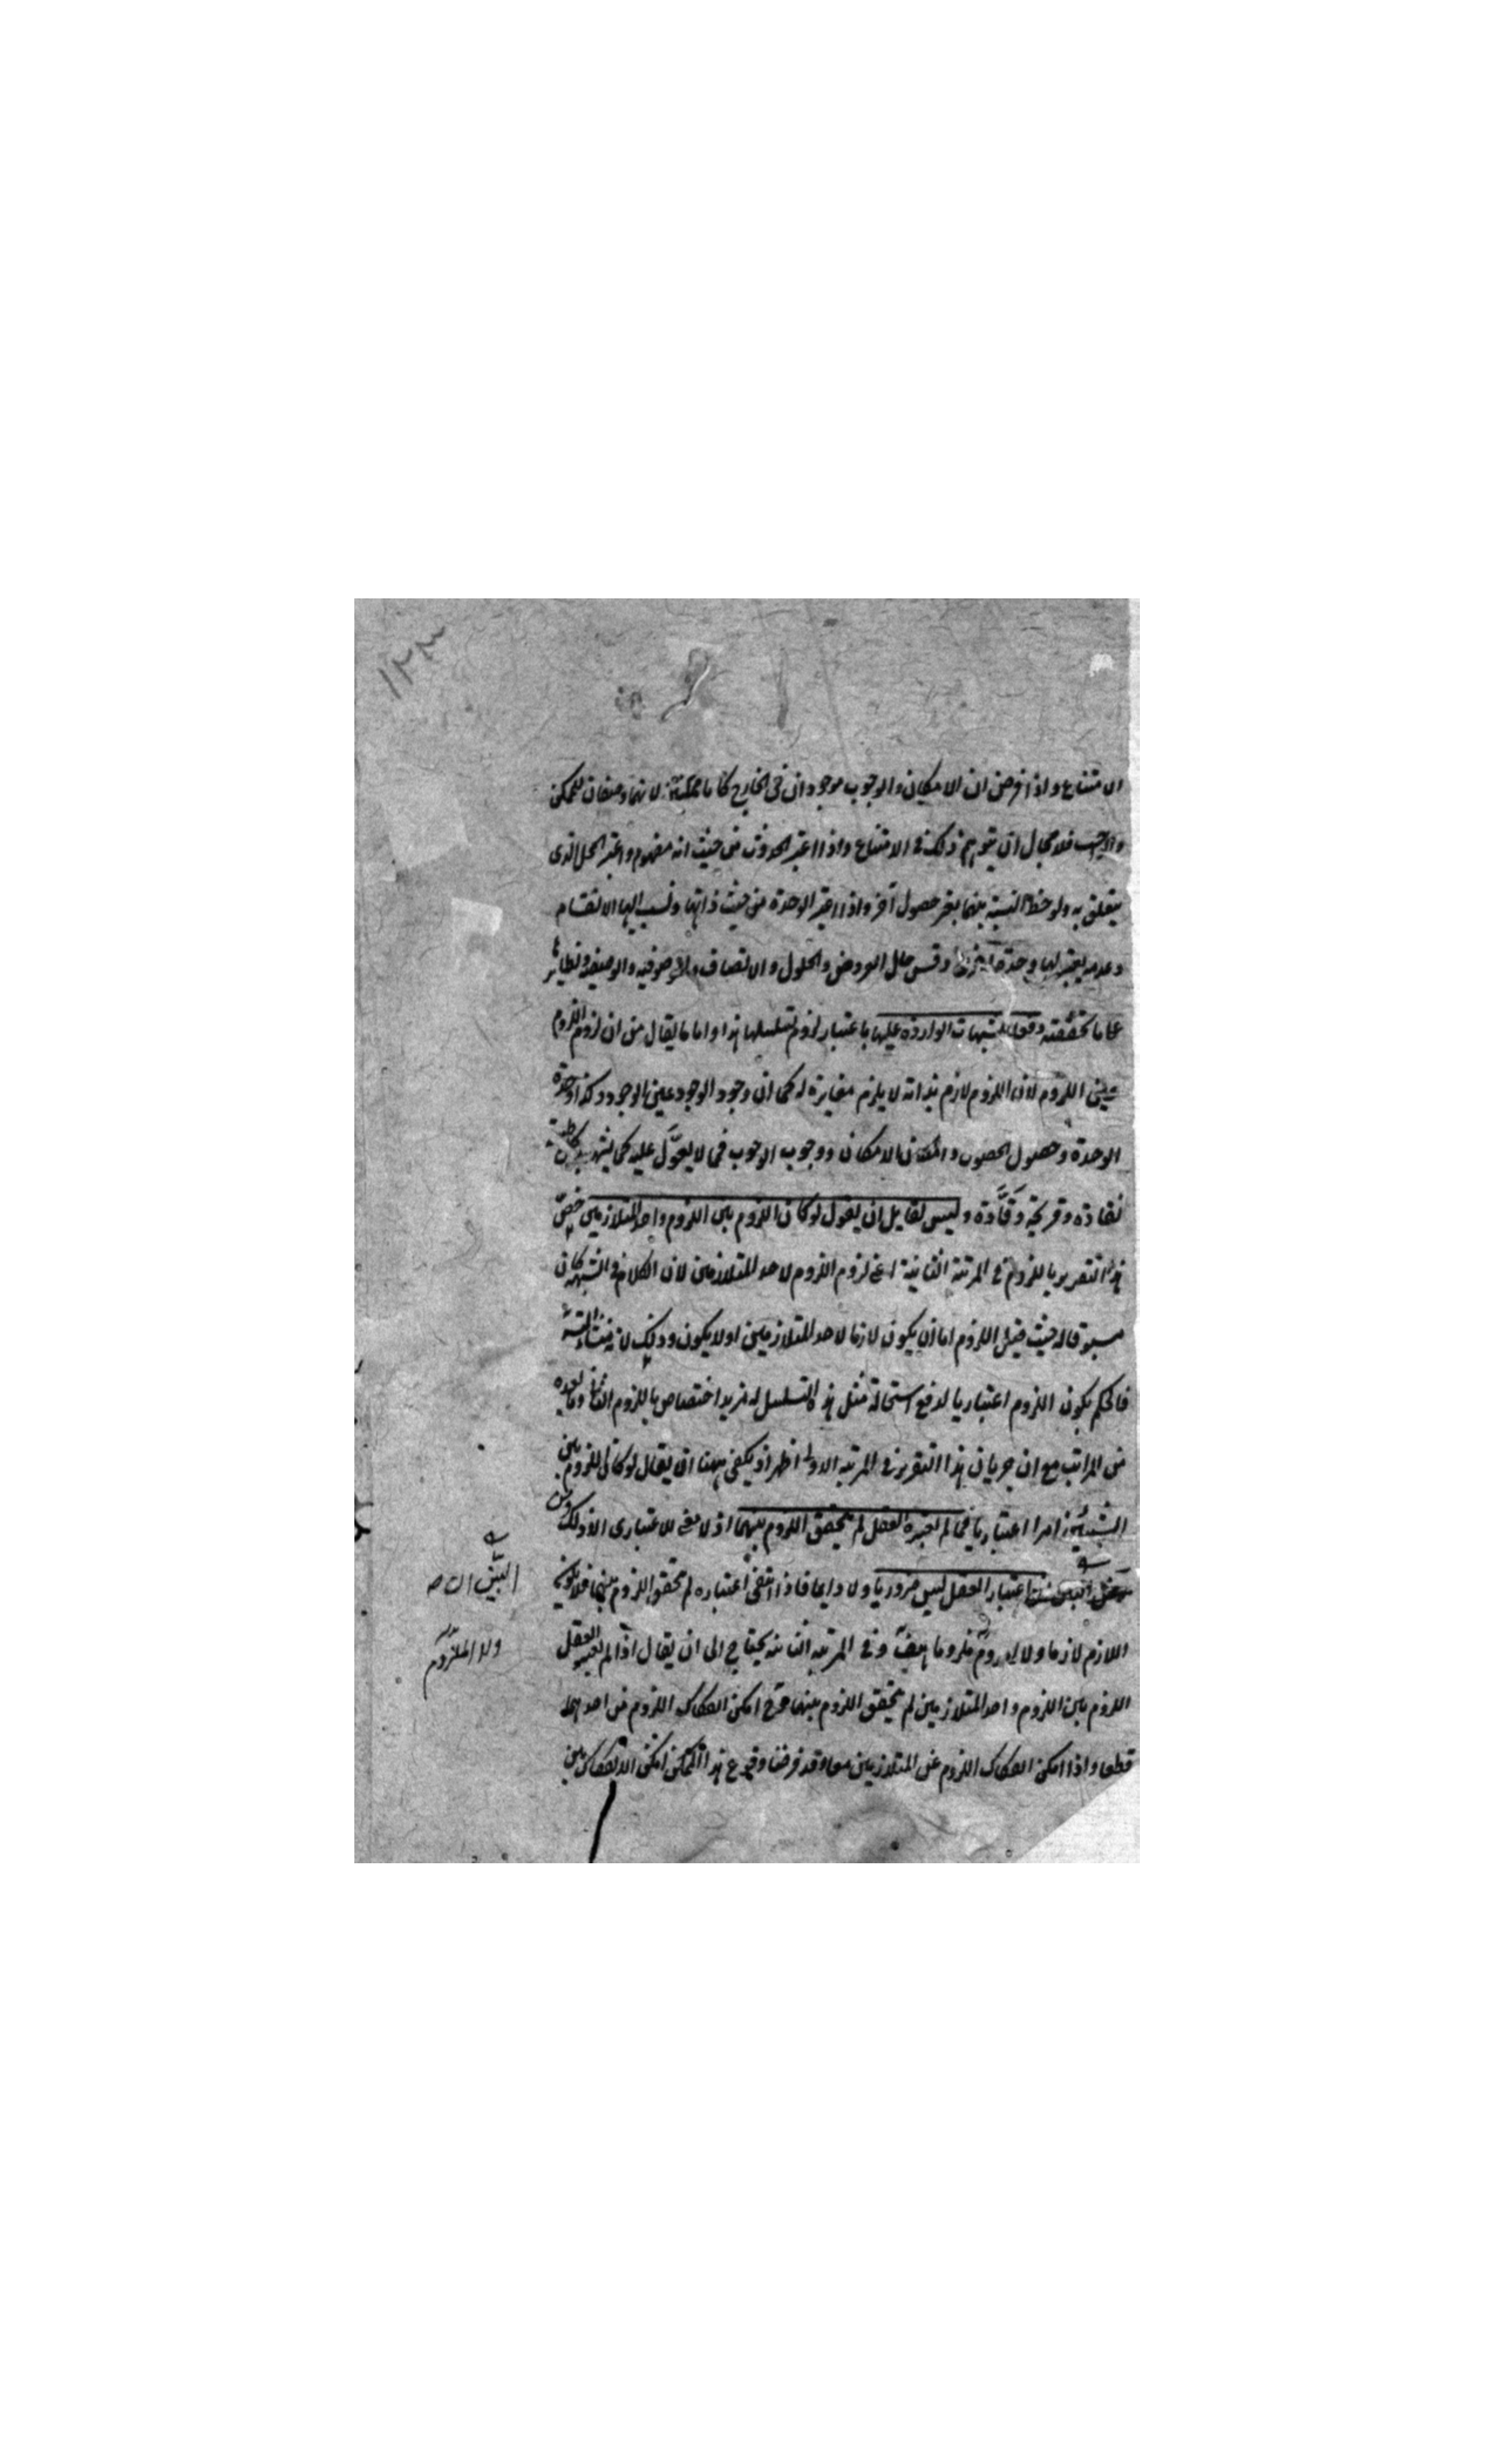 ١٢٣
الامتناع واذا فرض ان الامكان والوجوب موجودان فى الخارج كانا ممكنين لانهما وصفان للممكن
والواجب فلا مجال ان يتوهم ذلك فى الامتناع واذا اعتبر الحدوث من حيث انه مفهوم واعتبر المحل الذى
يتعلق به ولوحظ النسبة بينهما يعتبر حصول آخر واذا اعتبر الوحدة من حيث ذاتها ونسب اليها الانقسام
وعدمه يعتبر لها وحدة اخرى وقس حال العروض والحلول والاتصاف والموصوفية والوصفية ونظائرها
على ما تحققته دفع الشبهات الواردة عليها باعتبار لزوم تسلسلها هذا واما ما يقال من ان لزوم اللزوم
عين اللزوم لان اللزوم لازم بذاته لا يلزم مغايرة له كما ان وجود الوجود عين الوجود وكذا وحدة
الوحدة وحصول الحصول وامكان الامكان ووجوب الوجوب فما لا يعول عليه كما يشهد به كل
نقادة وقريحة وقادة وليس لقايل ان يقول لو كان اللزوم بين اللزوم واحد المتلازمين خص
هذا التقرير باللزوم فى المرتبة الثانية اعنى لزوم اللزوم لاحد المتلازمين لان الكلام فى الشبهة كان
مسوقا له حيث قيل اللزوم اما ان يكون لازما لاحد المتلازمين اولا يكون وذلك لانه منشاء التسلسل
فالحكم بكون اللزوم اعتباريا لدفع استحالة مثل هذا التسلسل له مزيد اختصاص باللزوم الثانى وما بعده
من المراتب مع ان جريان هذا التقرير فى المرتبة الاولى اظهر اذ يكفى ههنا ان يقال لو كان اللزوم بين
الشيئين امرا اعتباريا فما لم يعتبره العقل لم يتحقق اللزوم بينهما اذ لا معنى للاعتبارى الا ذلك ومن
اعتبار العقل ليس ضروريا ولا دايما فاذا انتفى اعتباره لم يتحقق اللزوم بينهما فلا يكون
البيّن ان
اللازم لازما ولا الملزوم ملزوما هف وفى المرتبة الثانية يحتاج الى ان يقال اذا لم يعتبر العقل
ولا الملزوم
اللزوم بين اللزوم واحد المتلازمين لم يتحقق اللزوم بينهما فح امكن انفكاك اللزوم من احدهما
قطعا واذا امكن انفكاك اللزوم عن المتلازمين معا وقد فرضنا وقوع هذا الممكن امكن الانفكاك بين